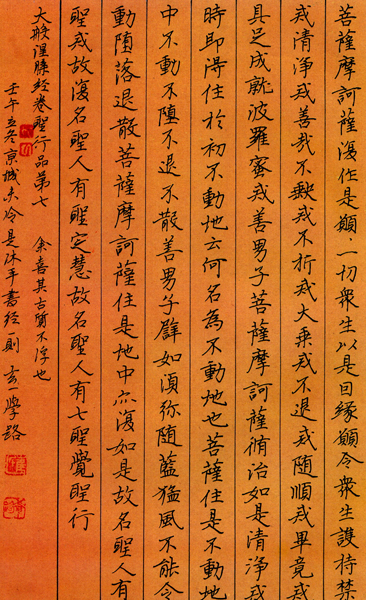 菩薩摩訶薩復作是願一切衆生以是因緣願令衆生護持禁
戒清淨戒善戒不缺戒不析戒大乘戒不退戒隨順戒畢竟戒
具足成就波羅蜜戒善男子菩薩摩訶薩脩治如是清淨戒
時即得住於初不動地云何名為不動地也菩薩住是不動地
中不動不墮不退不散善男子譬如須弥隨藍猛風不能令
動墮落退散菩薩摩訶薩住是地中亦復如是故名聖人有
聖戒故復名聖人有聖定慧故名聖人有七聖覺聖行
大般涅槃經卷聖行品第七 余喜其古質不浮也
壬午冬京城未冷是沐手書經一則 玄一學路